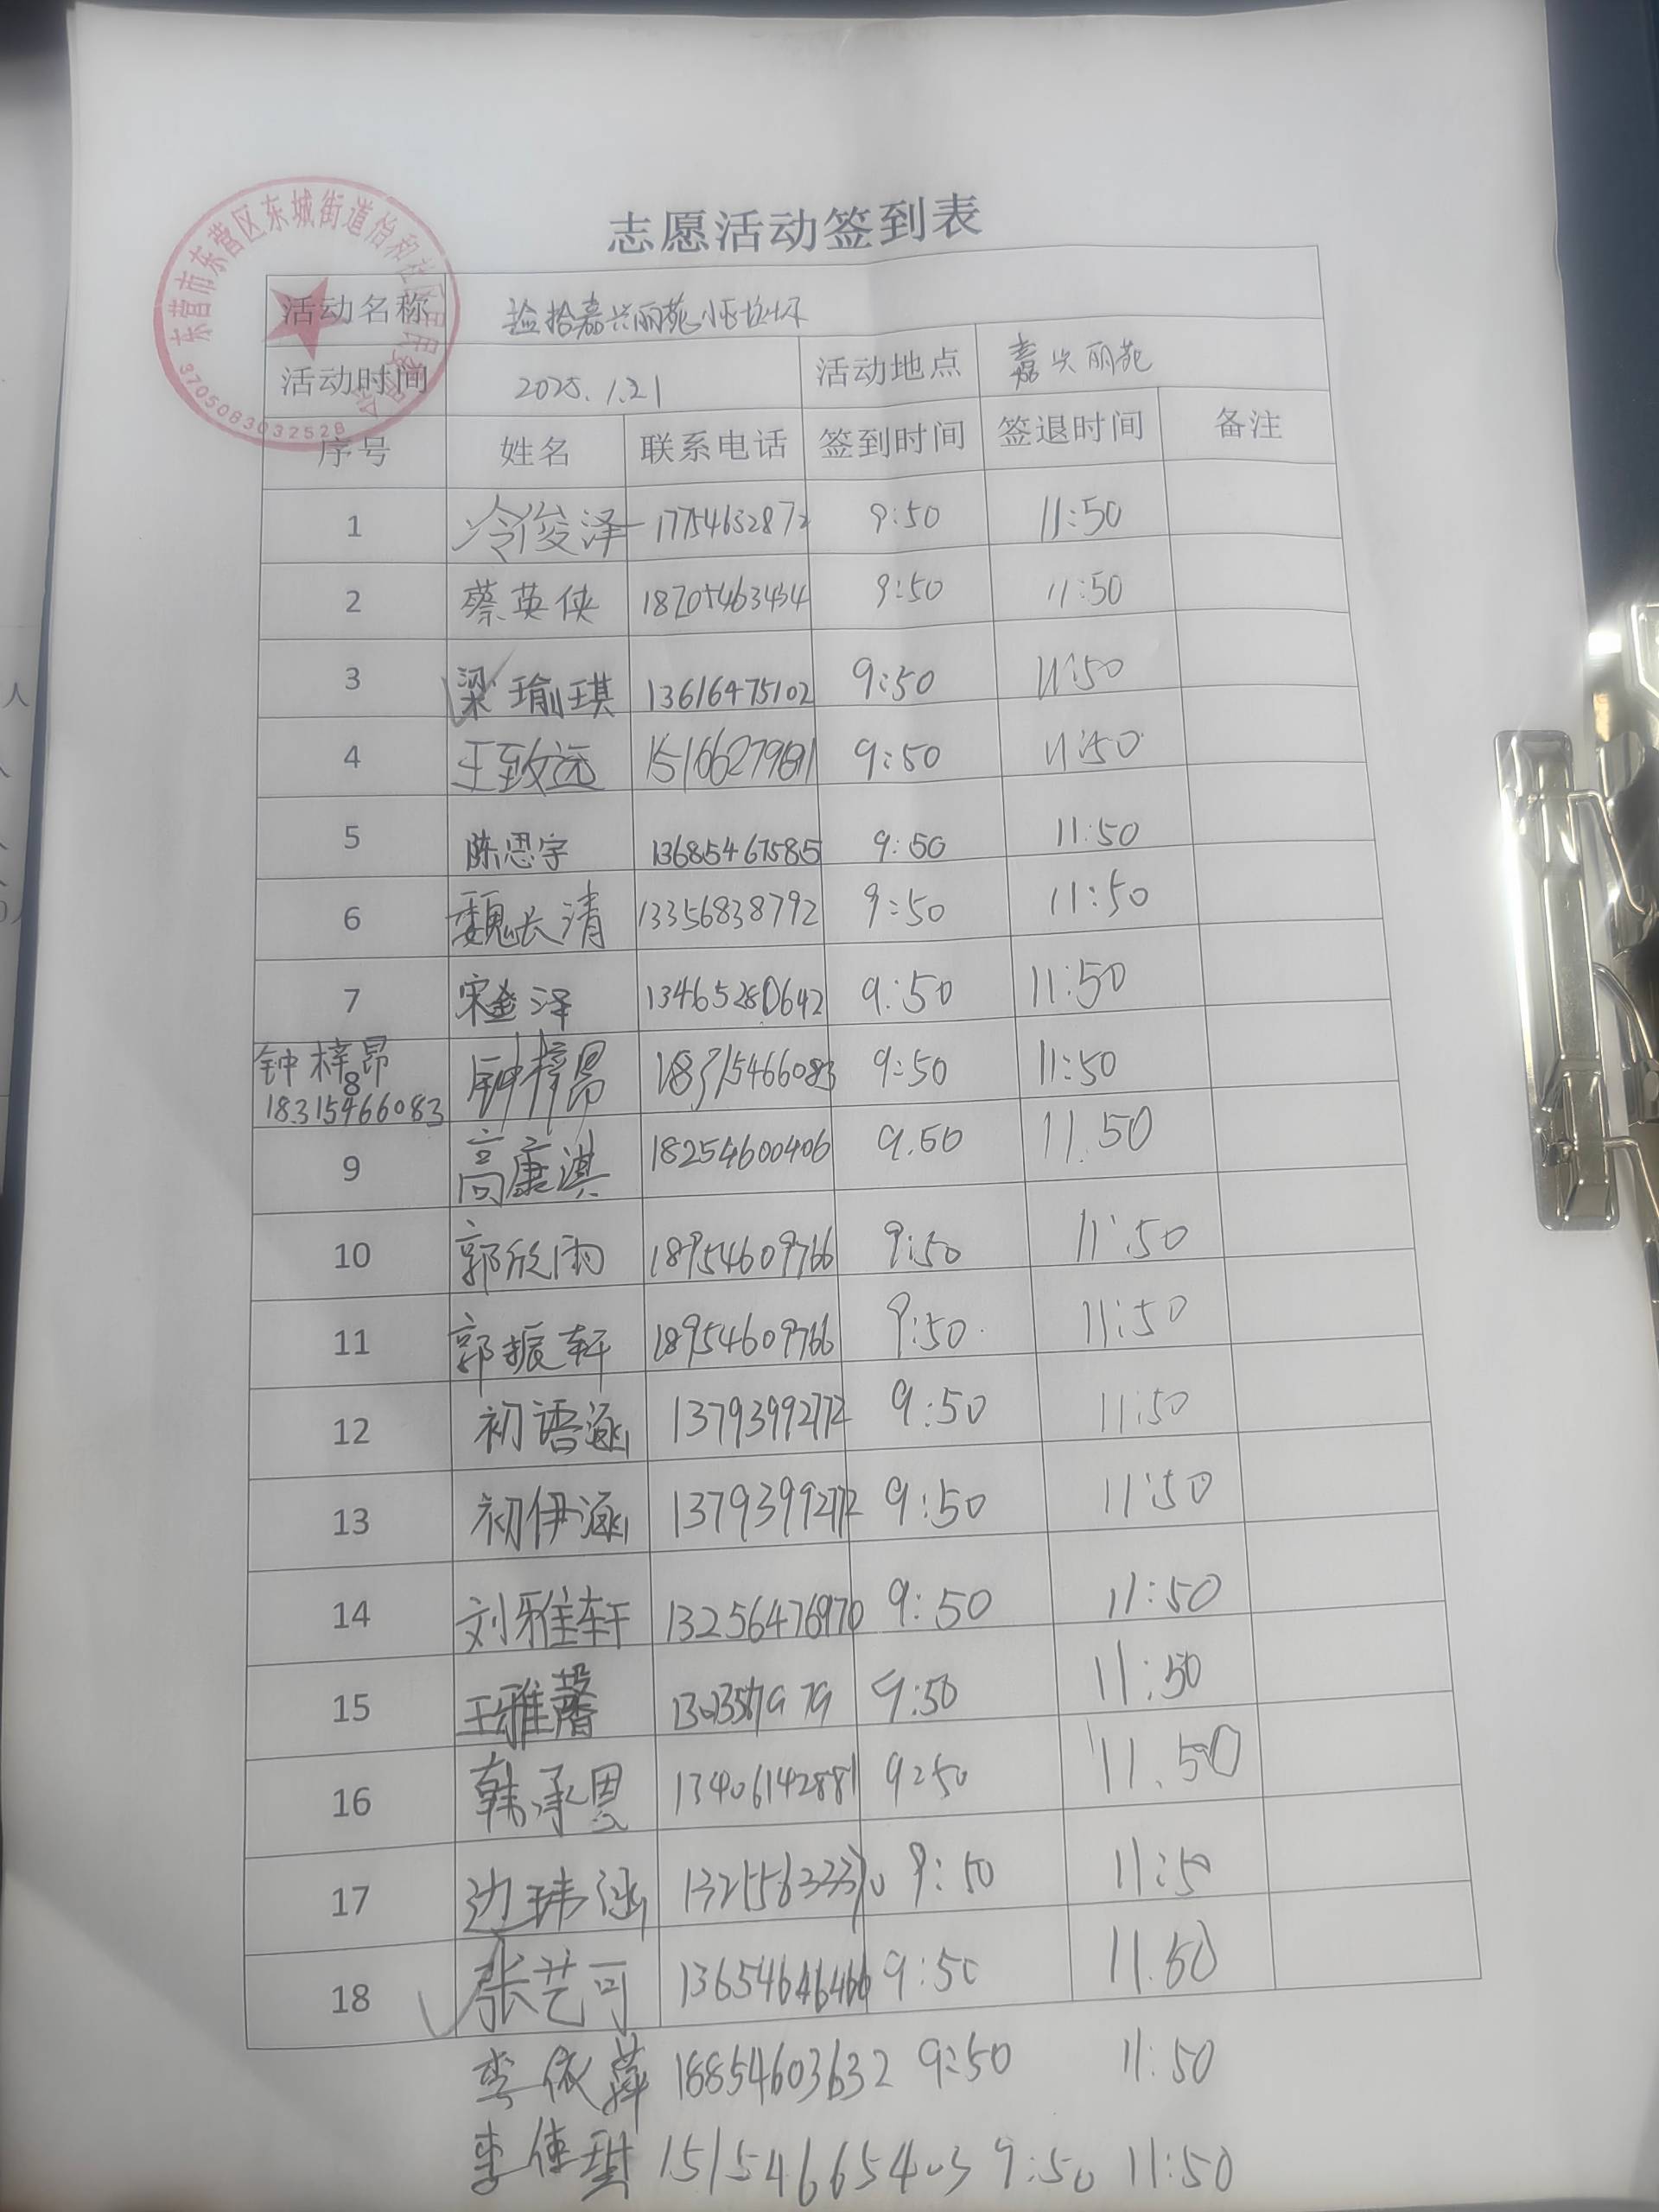 东营市东营区东城街道怡和社区居民委员会
3705083032528
志愿活动签到表
活动名称 捡拾嘉兴丽苑小区垃圾
活动时间 2025.1.21 活动地点 嘉兴丽苑
序号 姓名 联系电话 签到时间 签退时间 备注
1 冷俊泽 17754632872 9:50 11:50
2 蔡英侠 18705463434 9:50 11:50
3 梁瑜琪 13616475102 9:50 11:50
4 王致远 9:50 11:50
5 陈思宇 13685467585 9:50 11:50
6 魏长清 13356838792 9:50 11:50
7 宋 泽 13465280642 9:50 11:50
钟梓昂
8 钟梓昂 18315466083 9:50 11:50
18315466083
9 高康淇 18254600406 9.50 11.50
10 郭欣雨 18954609766 9:50 11:50
11 郭振轩 18954609766 9:50 11:50
12 初语涵 13793992772 9:50 11:50
13 初伊涵 13793992772 9:50 11:50
14 刘雅轩 13256476970 9:50 11:50
15 王雅馨 9:50 11:50
16 韩承恩 13406142881 9:50 11.50
17 边玮涵 9:50 11:50
18 张艺可 13654646466 9:50 11.50
李依萍 18854603632 9:50 11:50
李佳琪 15154665403 9:50 11:50